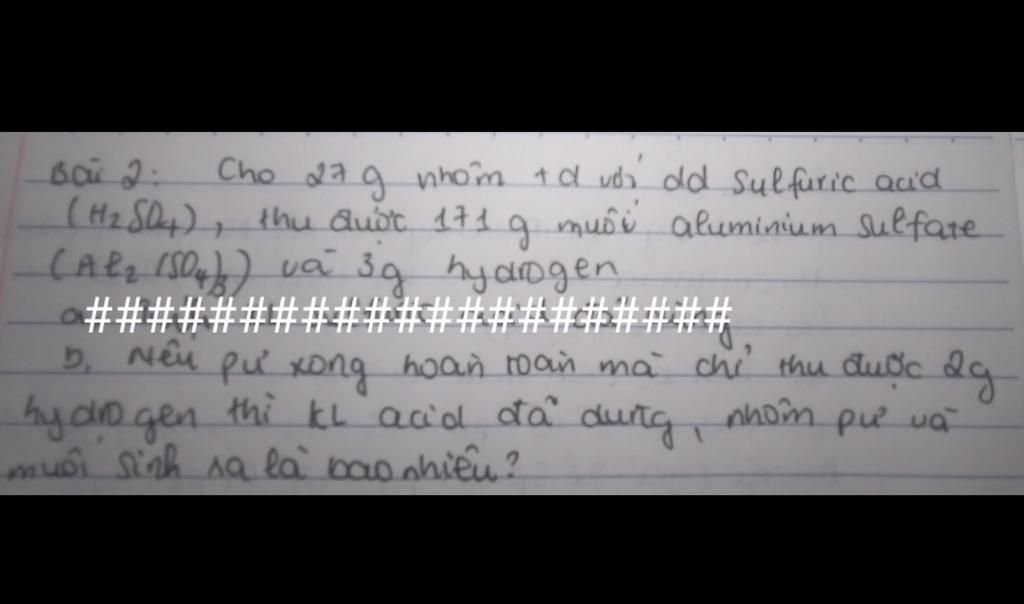 Bài 2: Cho 27 g nhôm + d với dd sulfuric acid
(H2SO4), thu được 171 g muối aluminium sulfate
(Al2(SO4)3) và 3g hydrogen
a #####################
b, Nếu pư xong hoàn toàn mà chỉ thu được 2g
hydrogen thì KL acid đã dùng, nhôm pư và
muối sinh ra là bao nhiêu?